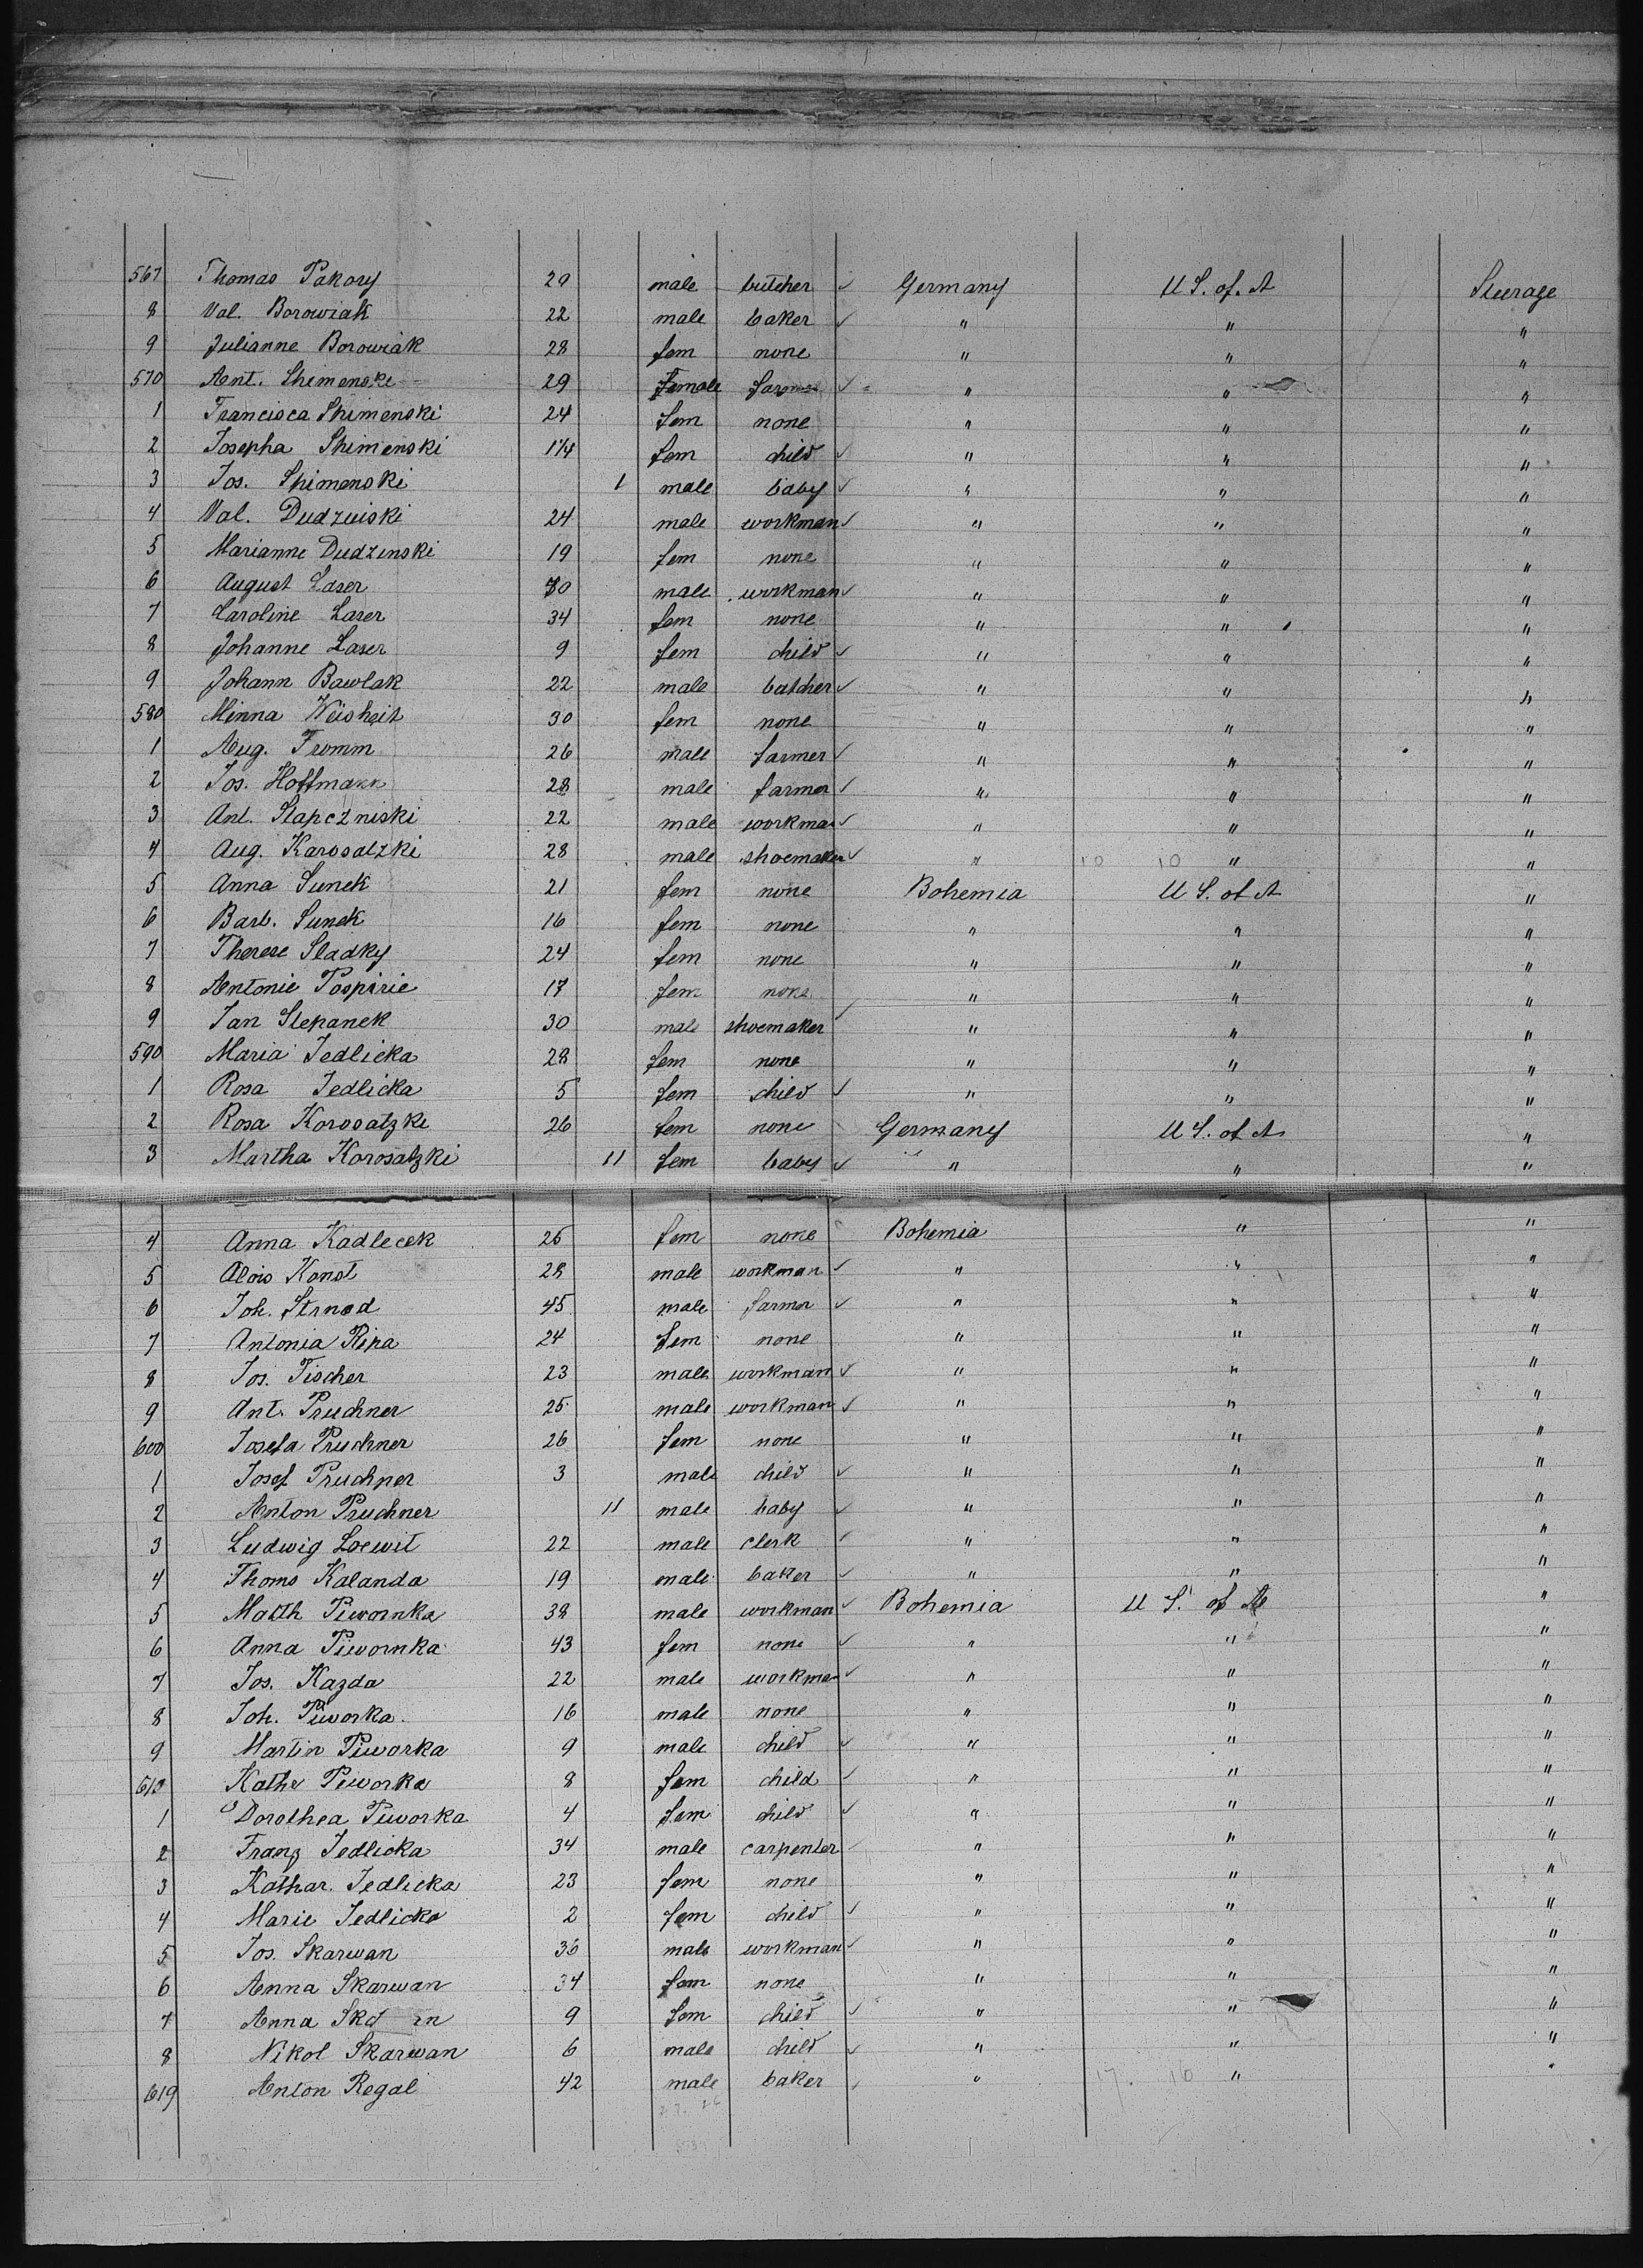 567 Thomas Pakory 29 male butcher ✓ Germany U S. of. A Steerage
8 Val. Borowiak 22 male baker ✓ " " "
9 Julianne Borowiak 28 fem none " " "
570 Ant. Shimenski 29 Female farmer ✓ " " "
1 Francisca Shimenski 24 fem none " " "
2 Josepha Shimenski fem child ✓ " " "
3 Jos. Shimenski 1 male baby ✓ " " "
4 Val. Dudzuiski 24 male workman ✓ " " "
5 Marianne Dudzinski 19 fem none " " "
6 August Laser male workman ✓ " " "
7 Caroline Laser 34 fem none " " "
8 Johanne Laser 9 fem child ✓ " " "
9 Johann Bawlak 22 male butcher ✓ " " "
580 Minna Weisheit 30 fem none " " "
1 Aug. Fromm 26 male farmer ✓ " " "
2 Jos. Hoffmann 28 male farmer ✓ " " "
3 Ant. Slapczniski 22 male workman ✓ " " "
4 Aug. Karosatzki 28 male shoemaker ✓ " 10 10 " "
5 Anna Sunek 21 fem none Bohemia U S. of A "
6 Barb. Sunek 16 fem none " " "
7 Therese Sladky 24 fem none " " "
8 Antonie Pospirie 17 fem none " " "
9 Jan Stepanek 30 male shoemaker ✓ " " "
590 Maria Jedlicka 28 fem none " " "
1 Rosa Jedlicka 5 fem child ✓ " " "
2 Rosa Korosatzke 26 fem none Germany U S. of A "
3 Martha Korosatzki 11 fem baby ✓ " " "
4 Anna Kadlecek 26 fem none Bohemia " "
5 Alois Konst 28 male workman ✓ " " "
6 Joh. Strnad 45 male farmer ✓ " " "
7 Antonia Ripa 24 fem none " " "
8 Jos. Fischer 23 male workman ✓ " " "
9 Ant. Pruchner 25 male workman ✓ " " "
600 Josefa Pruchner 26 fem none " " "
1 Josef Pruchner 3 male child ✓ " " "
2 Anton Pruchner 11 male baby ✓ " " "
3 Ludwig Loewit 22 male clerk ✓ " " "
4 Thoms Kalanda 19 male baker ✓ " " "
5 Matth Piwornka 38 male workman ✓ Bohemia U S. of A "
6 Anna Piwornka 43 fem none ✓ " " "
7 Jos. Kazda 22 male workman ✓ " " "
8 Joh. Piworka 16 male none " " "
9 Martin Piworka 9 male child ✓ " " "
610 Kathe Piworka 8 fem child ✓ " " "
1 Dorothea Piworka 4 fem child ✓ " " "
2 Franz Jedlicka 34 male carpenter ✓ " " "
3 Kathar. Jedlicka 23 fem none " " "
4 Marie Jedlicka 2 fem child ✓ " " "
5 Jos. Skarwan 36 male workman ✓ " " "
6 Anna Skarwan 34 fem none " " "
7 Anna Ska an 9 fem child ✓ " " "
8 Nikol Skarwan 6 male child ✓ " " "
619 Anton Regal 42 male baker ✓ " 17. 16 " "